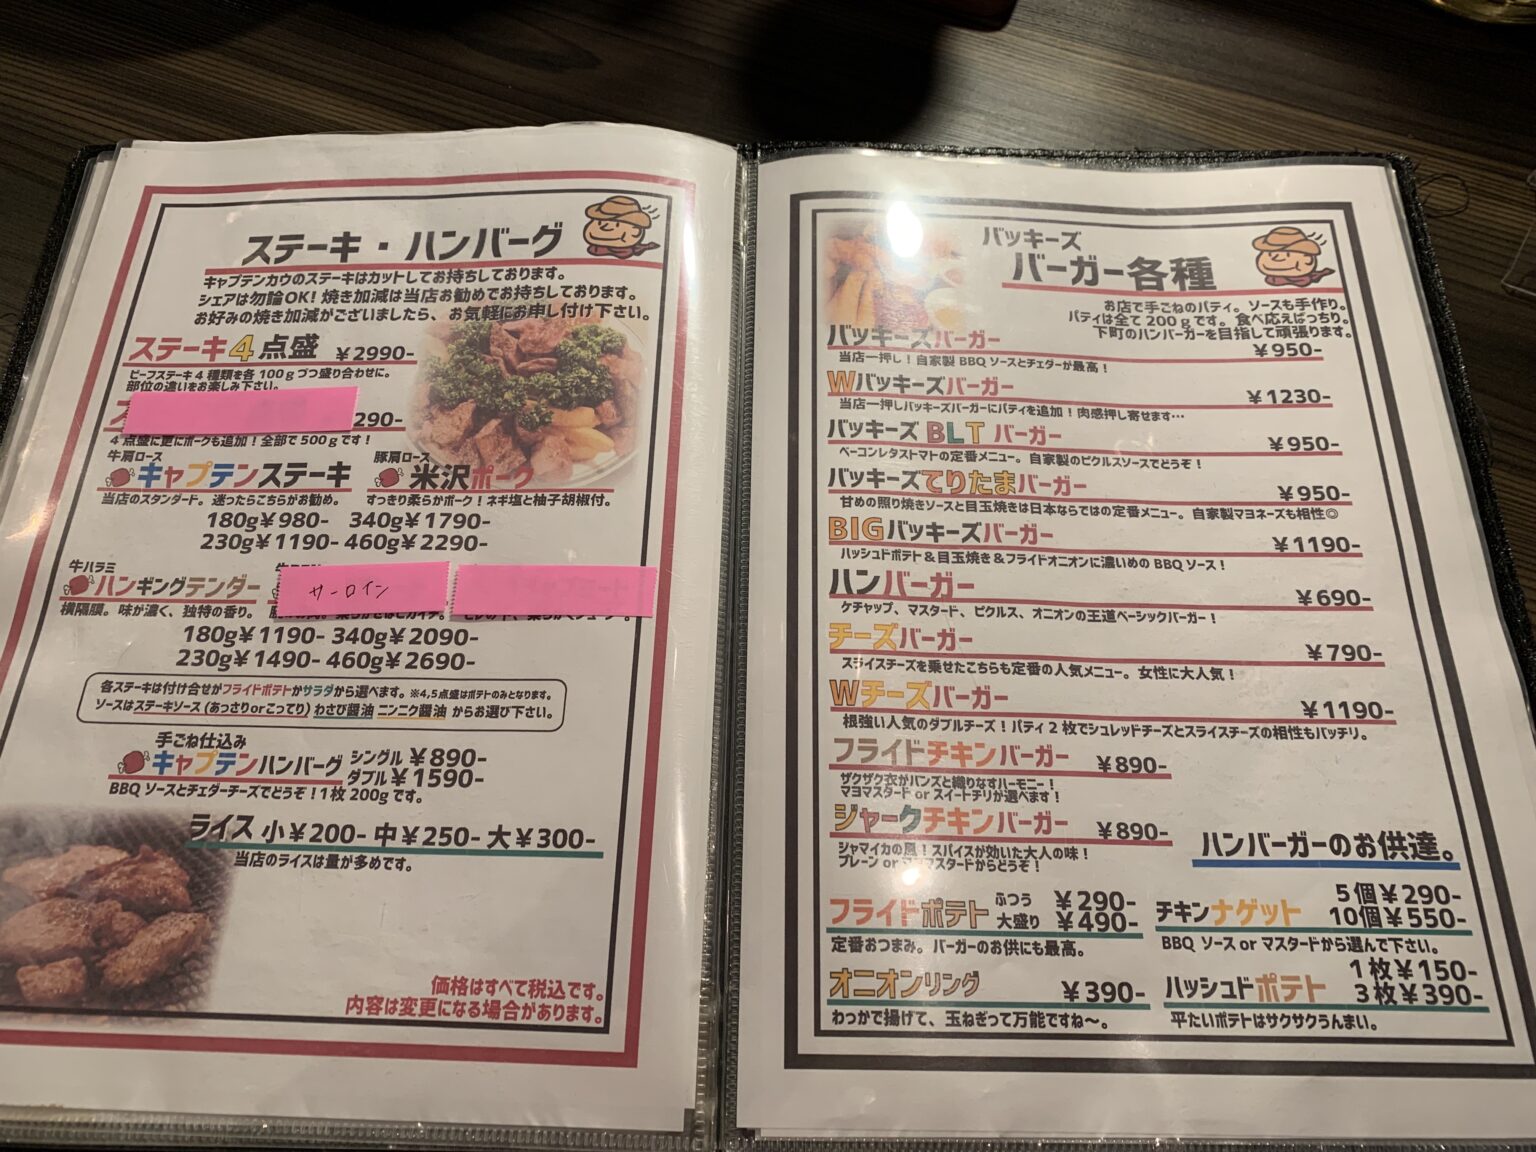 ステーキ・ハンバーグ
キャプテンカウのステーキはカットしてお持ちしております。
シェアは勿論OK!焼き加減は当店お勧めでお持ちしております。
お好みの焼き加減がございましたら、お気軽にお申し付け下さい。
ステーキ4点盛 ¥2990-
ビーフステーキ4種類を各100gづつ盛り合わせに。
部位の違いをお楽しみ下さい。
290-
4点盛に更にポークも追加!全部で500gです!
牛肩ロース 豚肩ロース
キャプテンステーキ 米沢ポーク
当店のスタンダード。迷ったらこちらがお勧め。 すっきり柔らかポーク!ネギ塩と柚子胡椒付。
180g¥980- 340g¥1790-
230g¥1190- 460g¥2290-
牛ハラミ
ハンギングテンダー サーロイン
横隔膜。味が濃く、独特の香り。
180g¥1190- 340g¥2090-
230g¥1490- 460g¥2690-
各ステーキは付け合せがフライドポテトかサラダから選べます。※4,5点盛はポテトのみとなります。
ソースはステーキソース(あっさりorこってり) わさび醤油 ニンニク醤油 からお選び下さい。
手ごね仕込み
キャプテンハンバーグ シングル ¥890-
ダブル ¥1590-
BBQ ソースとチェダーチーズでどうぞ!1枚 200gです。
ライス 小¥200- 中¥250- 大¥300-
当店のライスは量が多めです。
価格はすべて税込です。
内容は変更になる場合があります。
バッキーズ
バーガー各種
お店で手ごねのパティ。ソースも手作り。
パティは全て200gです。食べ応えばっちり。
下町のハンバーガーを目指して頑張ります。
バッキーズバーガー ¥950-
当店一押し!自家製 BBQ ソースとチェダーが最高!
Wバッキーズバーガー ¥1230-
当店一押しバッキーズバーガーにパティを追加!肉感押し寄せます…
バッキーズ BLT バーガー ¥950-
ベーコンレタストマトの定番メニュー。自家製のピクルスソースでどうぞ!
バッキーズてりたまバーガー ¥950-
甘めの照り焼きソースと目玉焼きは日本ならではの定番メニュー。自家製マヨネーズも相性◎
BIGバッキーズバーガー ¥1190-
ハッシュドポテト&目玉焼き&フライドオニオンに濃いめの BBQ ソース!
ハンバーガー ¥690-
ケチャップ、マスタード、ピクルス、オニオンの王道ベーシックバーガー!
チーズバーガー ¥790-
スライスチーズを乗せたこちらも定番の人気メニュー。女性に大人気!
Wチーズバーガー ¥1190-
根強い人気のダブルチーズ!パティ2枚でシュレッドチーズとスライスチーズの相性もバッチリ。
フライドチキンバーガー ¥890-
ザクザク衣がバンズと織りなすハーモニー!
マヨマスタード or スイートチリが選べます!
ジャークチキンバーガー ¥890-
ジャマイカの風!スパイスが効いた大人の味!
プレーン or マヨマスタードからどうぞ!
ハンバーガーのお供達。
フライドポテト ふつう ¥290-
大盛り ¥490-
定番おつまみ。バーガーのお供にも最高。
チキンナゲット 5個¥290-
10個¥550-
BBQ ソース or マスタードから選んで下さい。
オニオンリング ¥390-
わっかで揚げて、玉ねぎって万能ですね~。
ハッシュドポテト 1枚¥150-
3枚¥390-
平たいポテトはサクサクうんまい。